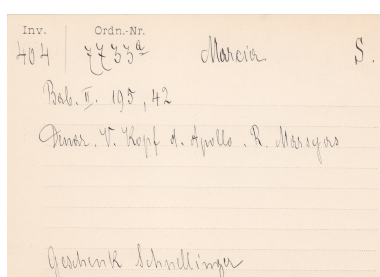 Inv. Ordn.-Nr.
404 7733a Marcia S.
Bab. II. 195, 42
Denar. V. Kopf d. Apollo. R. Marsyas
Geschenk Schnellinger